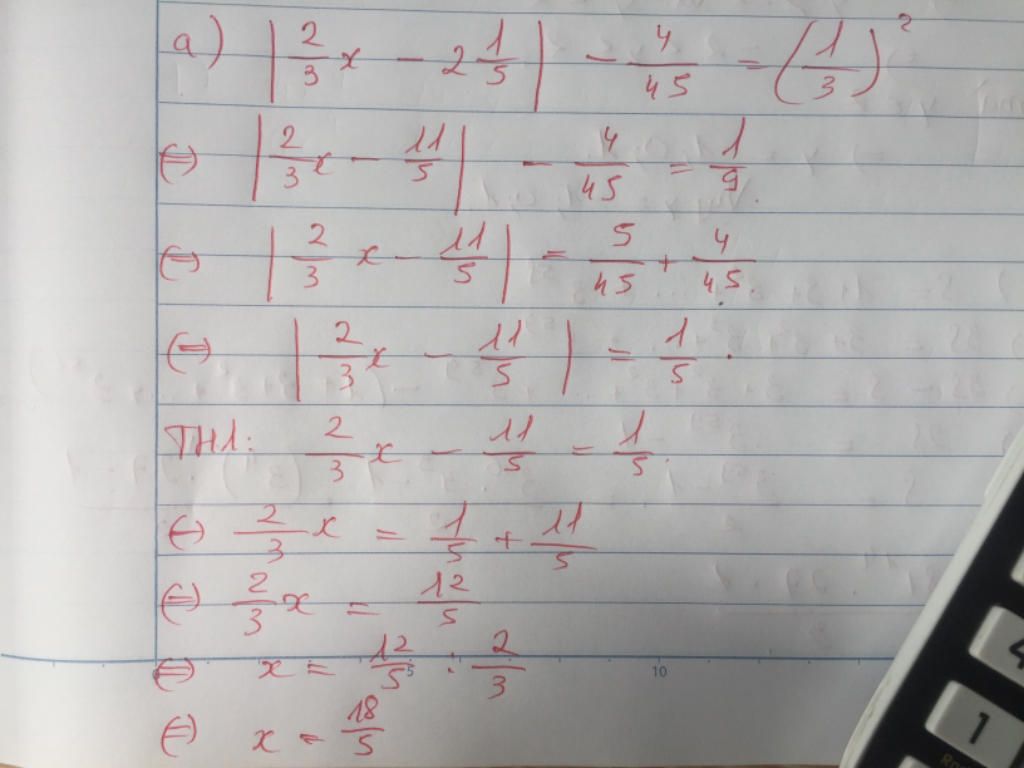 a) |2/3 x - 2 1/5| - 4/45 = (1/3)²
⇔ |2/3 x - 11/5| - 4/45 = 1/9.
⇔ |2/3 x - 11/5| = 5/45 + 4/45.
⇔ |2/3 x - 11/5| = 1/5.
TH1: 2/3 x - 11/5 = 1/5.
⇔ 2/3 x = 1/5 + 11/5
⇔ 2/3 x = 12/5
⇔ x = 12/5 : 2/3
5 10
⇔ x = 18/5
4
1